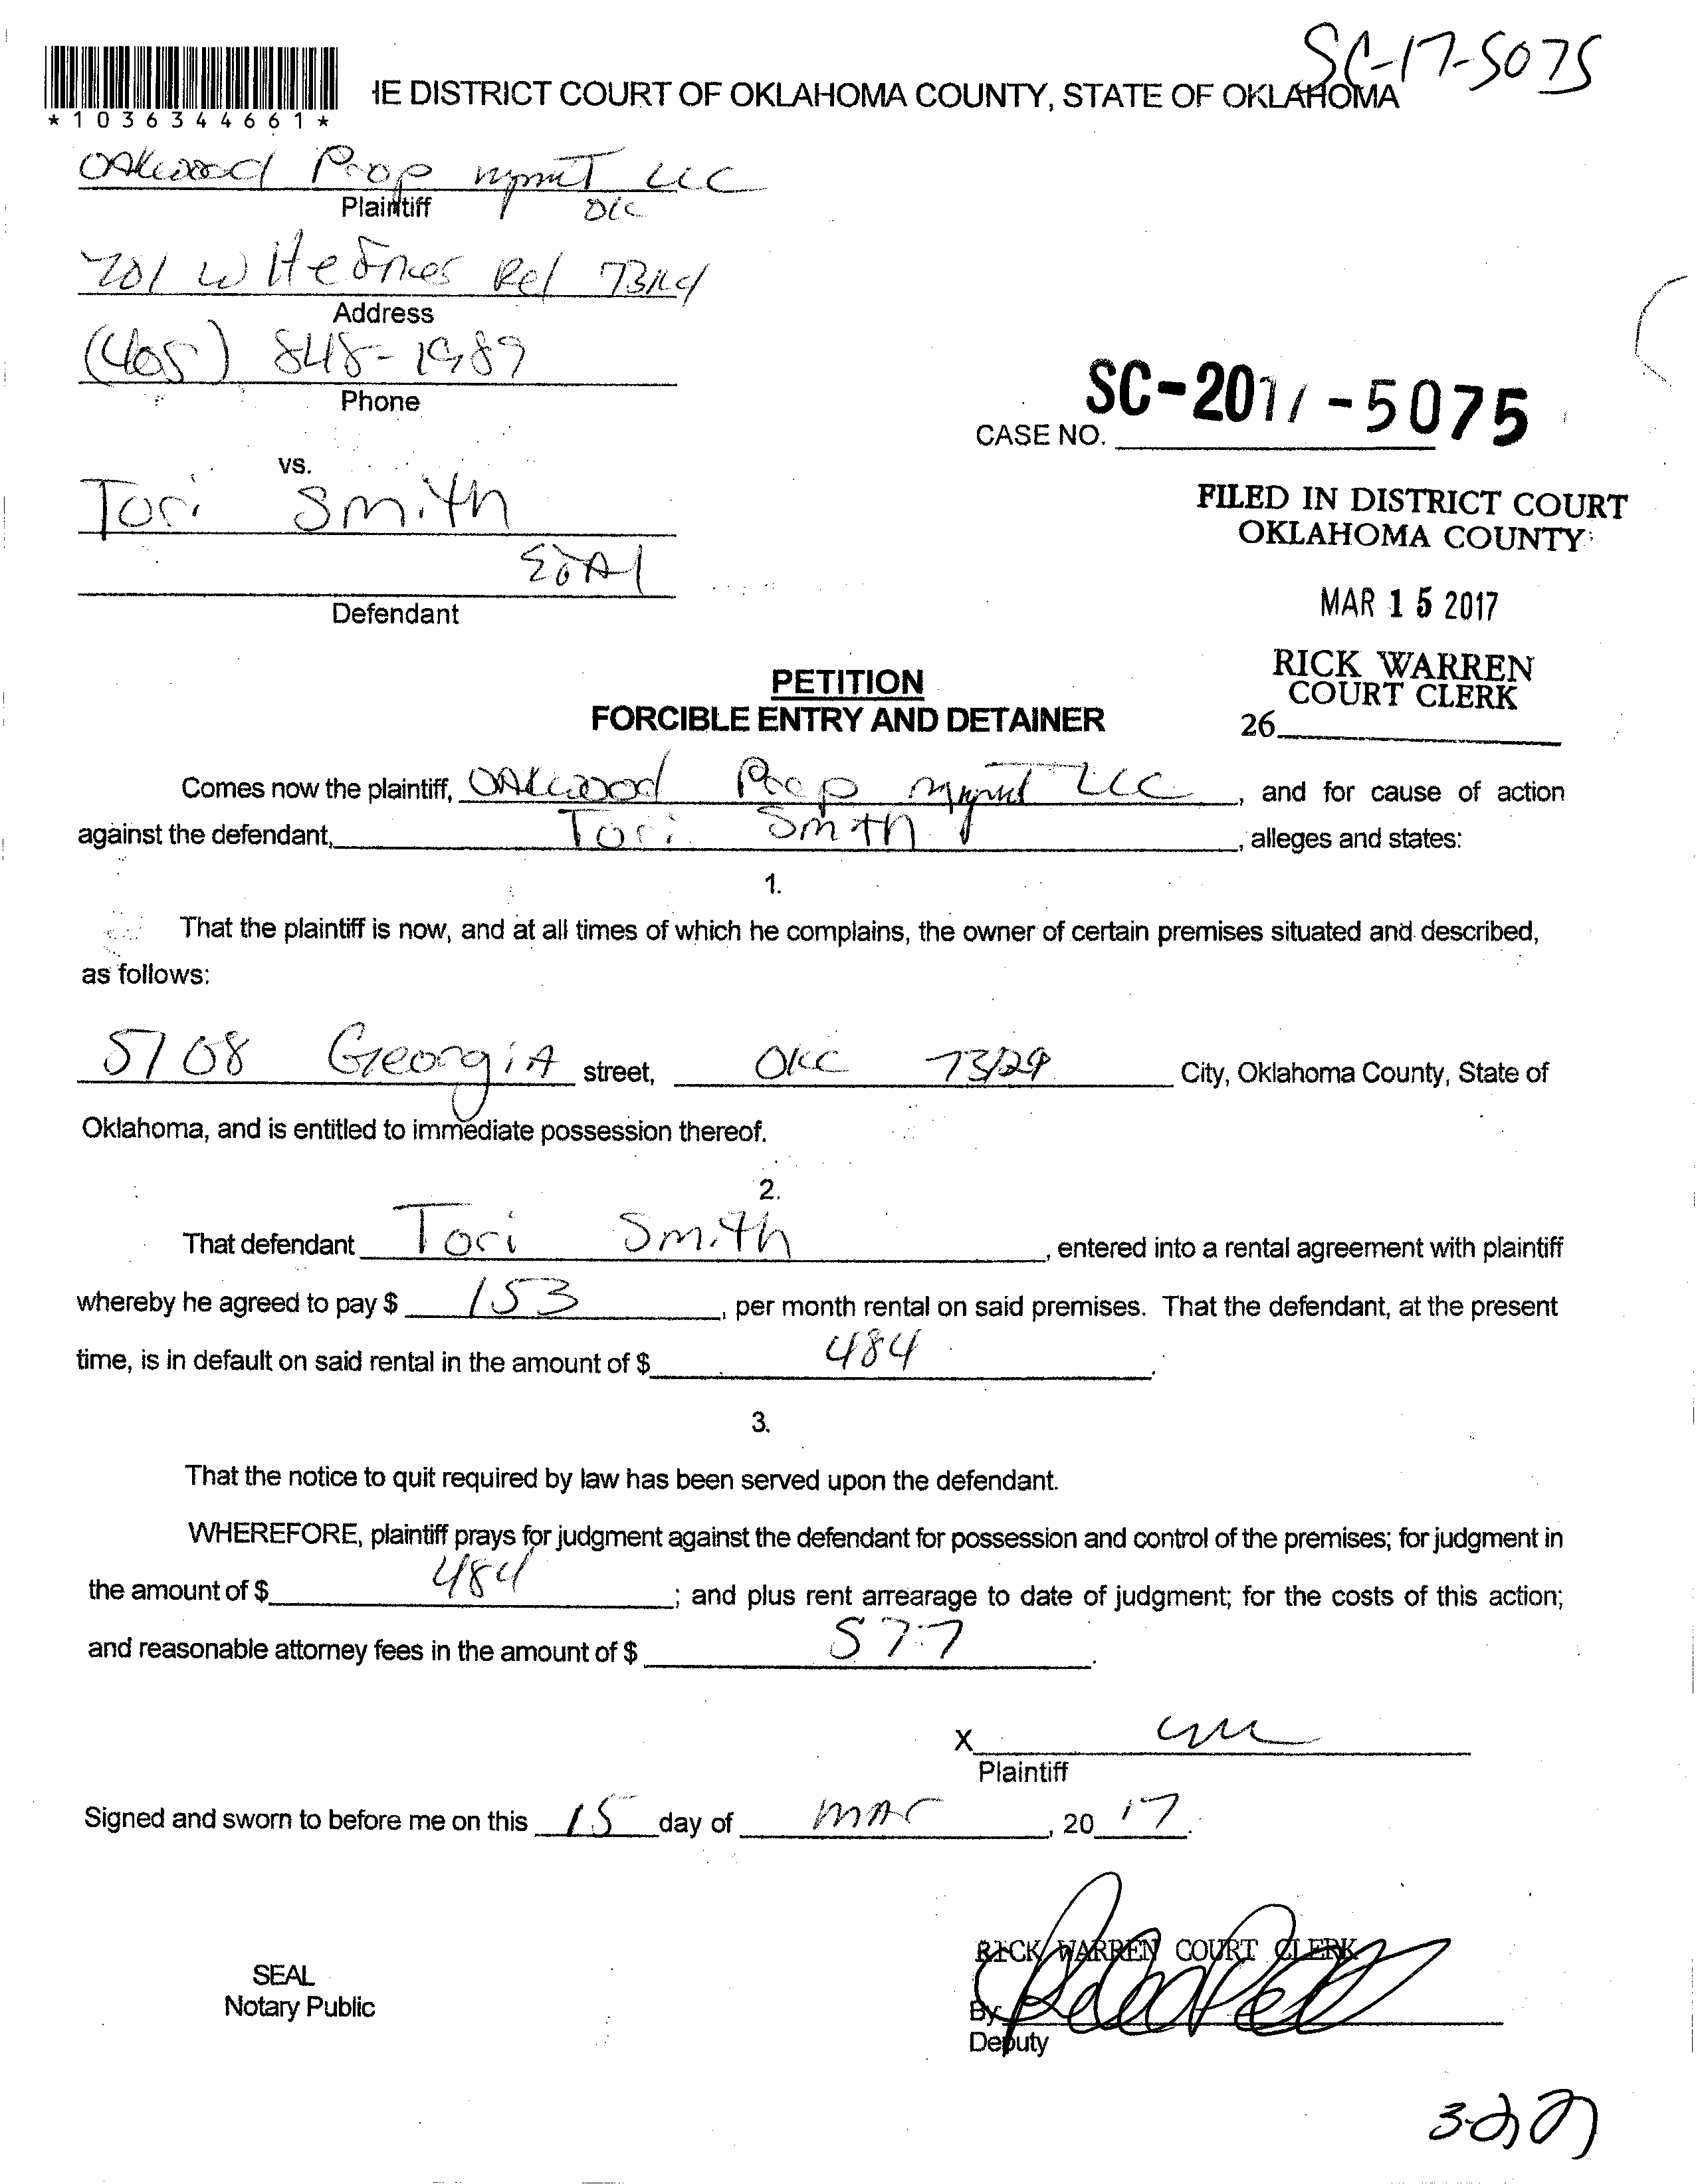 SC-17-5075
*1036344661*
HE DISTRICT COURT OF OKLAHOMA COUNTY, STATE OF OKLAHOMA
OAkwood Prop mgmT LLC
Plaintiff
OKC
201 W Hefner Rd 73114
Address
(405) 848-1989
Phone
SC-2017-5075
CASE NO.
vs.
Tori Smith
FILED IN DISTRICT COURT
OKLAHOMA COUNTY
ETAl
Defendant
MAR 15 2017
RICK WARREN
COURT CLERK
26
PETITION
FORCIBLE ENTRY AND DETAINER
Comes now the plaintiff, OAkwood Prop mgmt LLC, and for cause of action
against the defendant, Tori Smith, alleges and states:
1.
That the plaintiff is now, and at all times of which he complains, the owner of certain premises situated and described,
as follows:
5708 GeorgiA street, OKC 73129 City, Oklahoma County, State of
Oklahoma, and is entitled to immediate possession thereof.
2.
That defendant Tori Smith, entered into a rental agreement with plaintiff
whereby he agreed to pay $ 153, per month rental on said premises. That the defendant, at the present
time, is in default on said rental in the amount of $ 484.
3.
That the notice to quit required by law has been served upon the defendant.
WHEREFORE, plaintiff prays for judgment against the defendant for possession and control of the premises; for judgment in
the amount of $ 484; and plus rent arrearage to date of judgment; for the costs of this action;
and reasonable attorney fees in the amount of $ 577.
X
Plaintiff
Signed and sworn to before me on this 15 day of mAr, 20 17.
RICK WARREN COURT CLERK
SEAL
Notary Public
By
Deputy